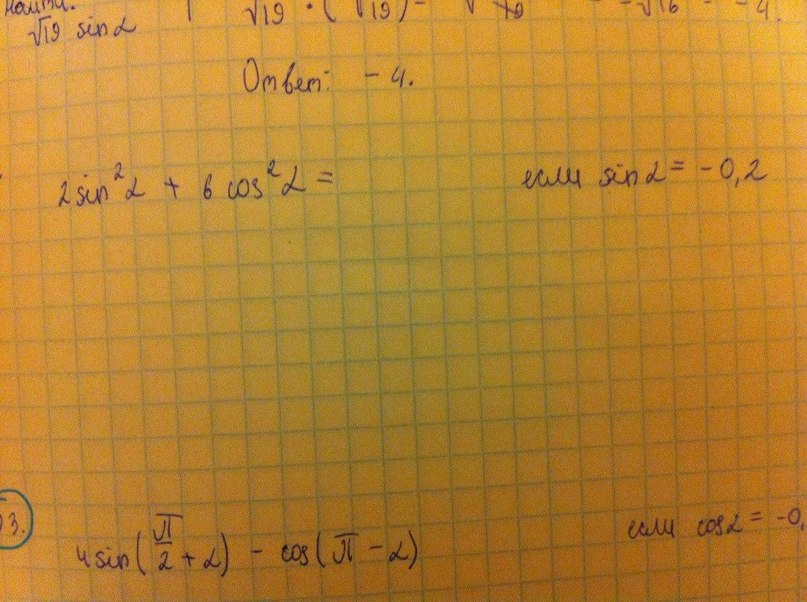 найти.
√19 sin α
√19 · ( √19 ) = √ 19 = -√16 = -4.
Ответ: -4.
2sin²α + 6 cos²α = если sin α = -0,2
3.
4sin(π/2 + α) - cos(π - α) если cos α = -0,